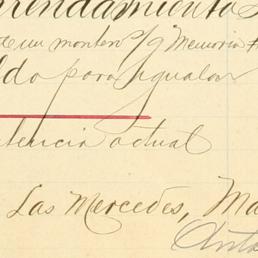 rrendamiento
de un montero s/g Memoria #
ldo para igualar
istencia actual
Las Mercedes, Ma
Anto